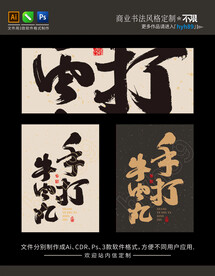 Ai
Ps
文件用3款软件格式制作
商业书法风格定制❀不限
更多作品请进入/
肉打
手打
牛肉丸
手打
牛肉丸
文件分别制作成Ai、CDR、Ps、3款软件格式,方便不同用户应用.
欢迎站内信定制